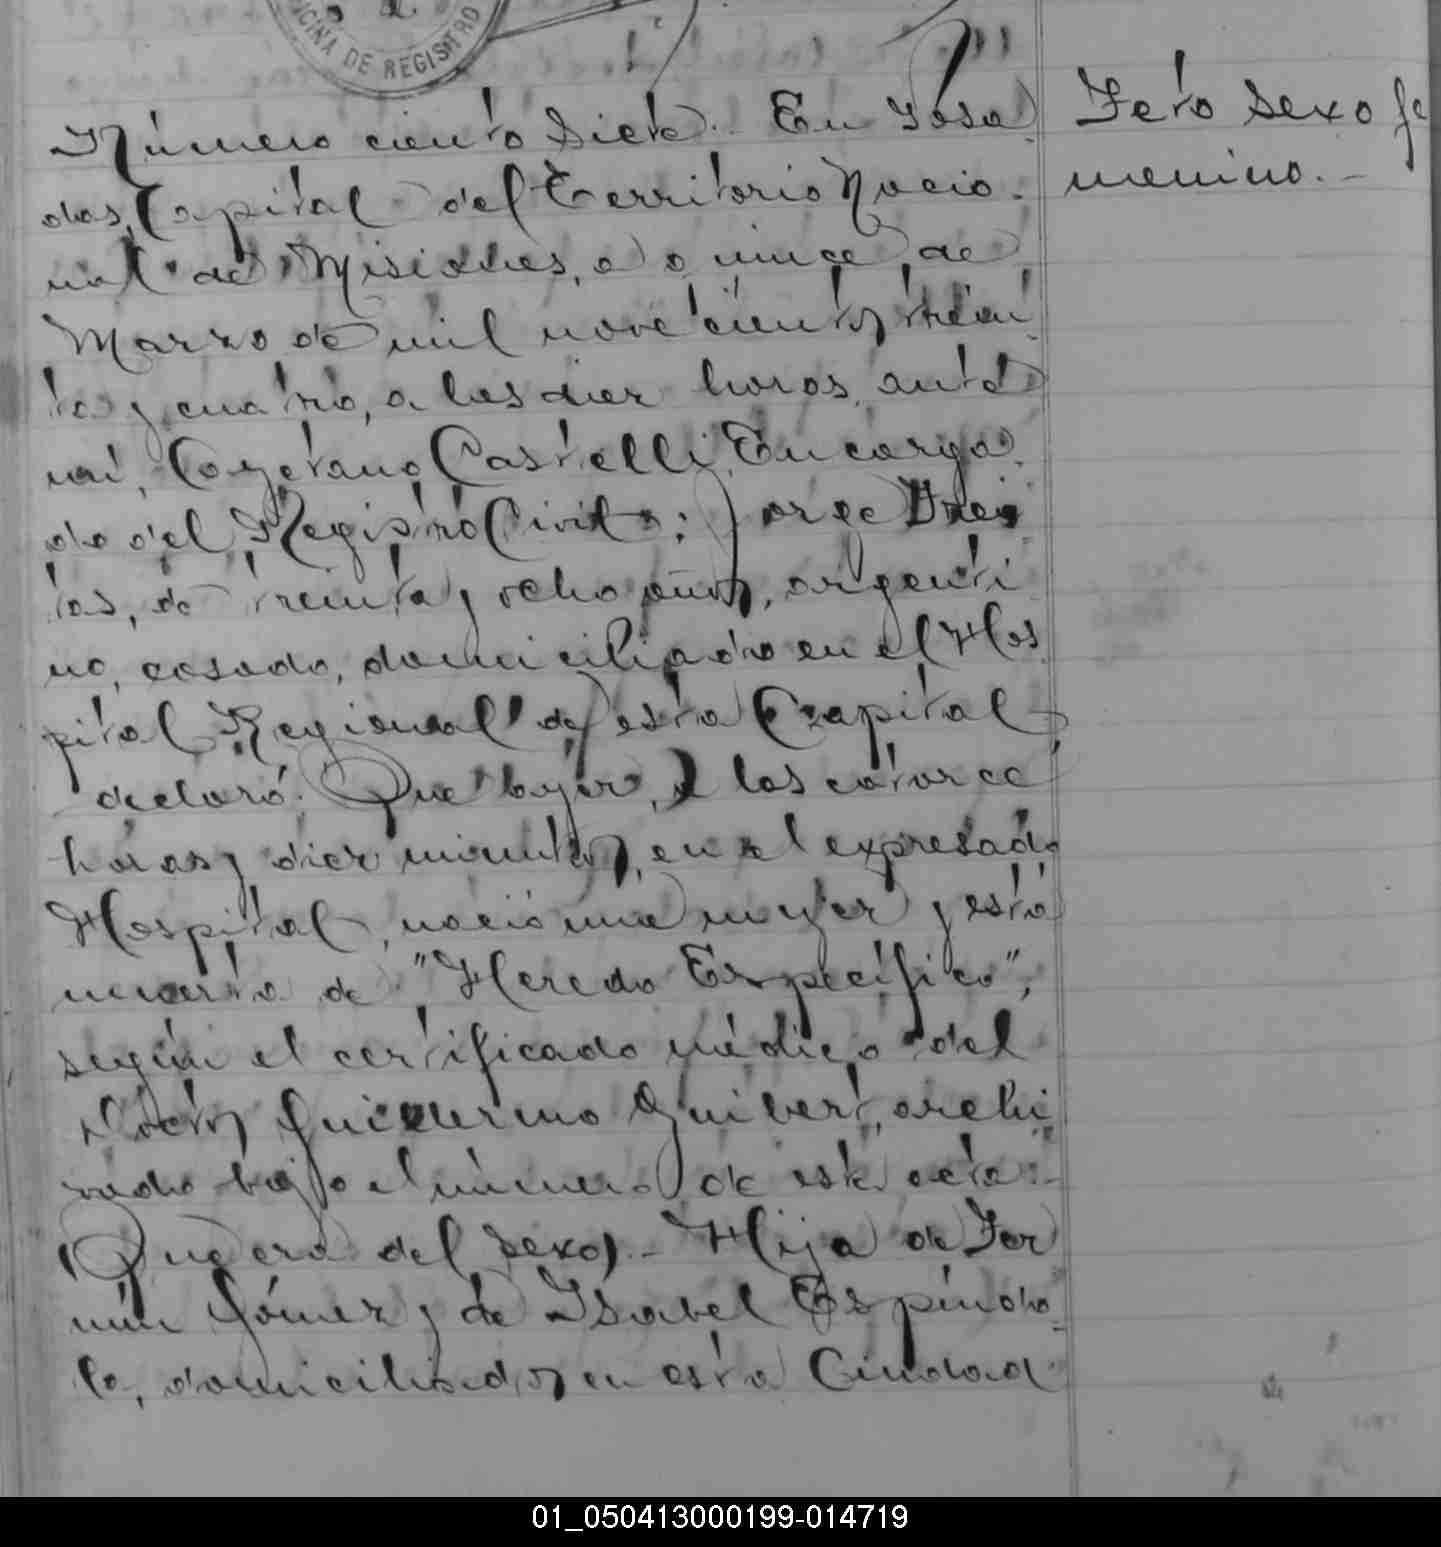 OFICINA DE REGISTRO
Número ciento siete. En Posa
das, Capital del Territorio Nacio
nal de Misiones, a quince de
Marzo de mil novecientos trein
ta y cuatro, a las diez horas, ante
mi, Cayetano Castelli, Encarga
do del Registro Civil: Jorge
tas, de treinta y ocho años, argenti
no, casado, domiciliado en el Hos
pital Regional de esta Capital,
declaró: Que ayer, a las catorce
horas y diez minutos, en el expresado
Hospital, nació una mujer y está
muerta de "Heredo Específico",
según el certificado médico del
Doctor Guillermo Guibert, archi
vado bajo el número de este acta:
Que era del sexo. - Hija de Fer
mín Gómez y de Isabel Espíndo
la, domiciliados en esta Ciudad
Feto sexo fe
menino. -
01_050413000199-014719